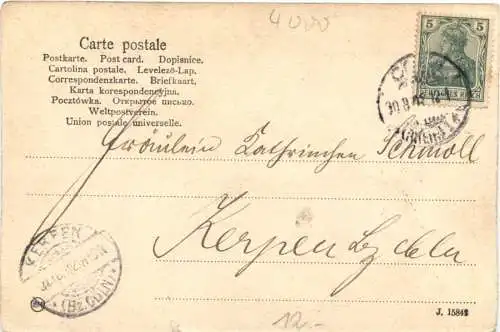 4000
Carte postale
Postkarte. Post card. Dopisnice.
Cartolina postale. Levelező-Lap.
Correspondenzkarte. Briefkaart.
Karta korespondencyjna.
Pocztówka. Открытое письмо.
Weltpostverein.
Union postale universelle.
5 5
DEUTSCHES REICH
Fräulein Kathrinchen Schmoll
Kerpen Bz Cöln
KERPEN
(Bz. CÖLN)
12.-
J. 15842